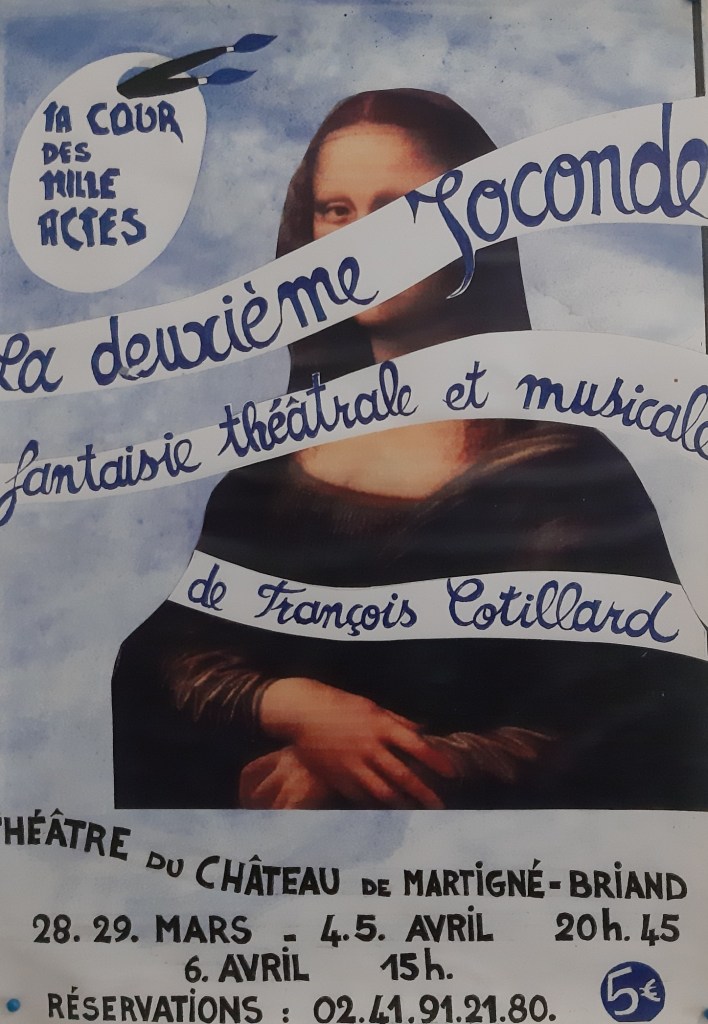 LA COUR
DES
MILLE
ACTES
La deuxième Joconde
fantaisie théâtrale et musicale
de François Cotillard
THÉÂTRE DU CHÂTEAU DE MARTIGNÉ-BRIAND
28. 29. MARS - 4.5. AVRIL 20h. 45
6. AVRIL 15h.
5€
RÉSERVATIONS : 02.41.91.21.80.